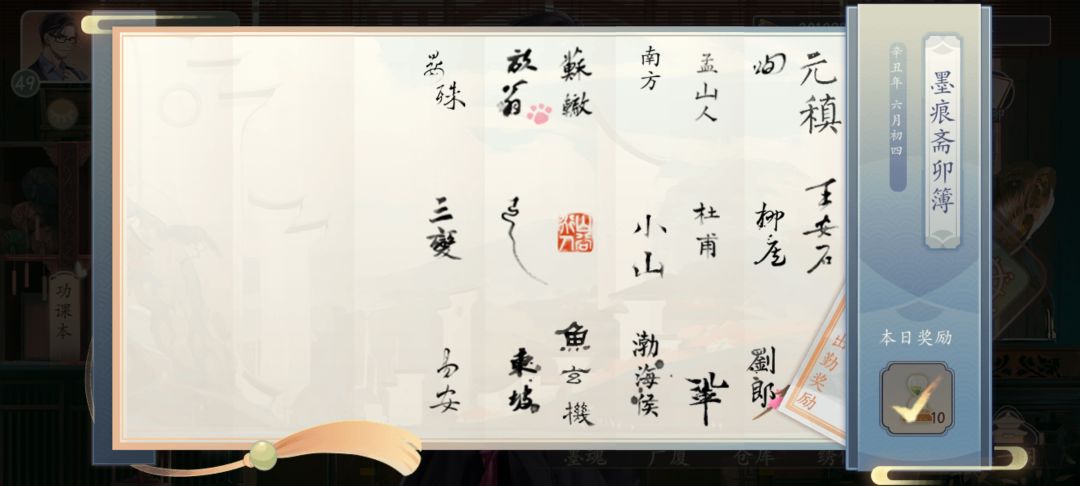 墨痕斋卯簿
辛丑年 六月初四
本日奖励
10
出勤奖励
元稹
王安石
洵
柳虎
劉郎
孟山人
杜甫
巩
南方
小山
渤海侯
蘇轍
山谷
魚玄機
放翁
東坡
晏殊
三變
易安
49
功课本
墨魂
广厦
仓库